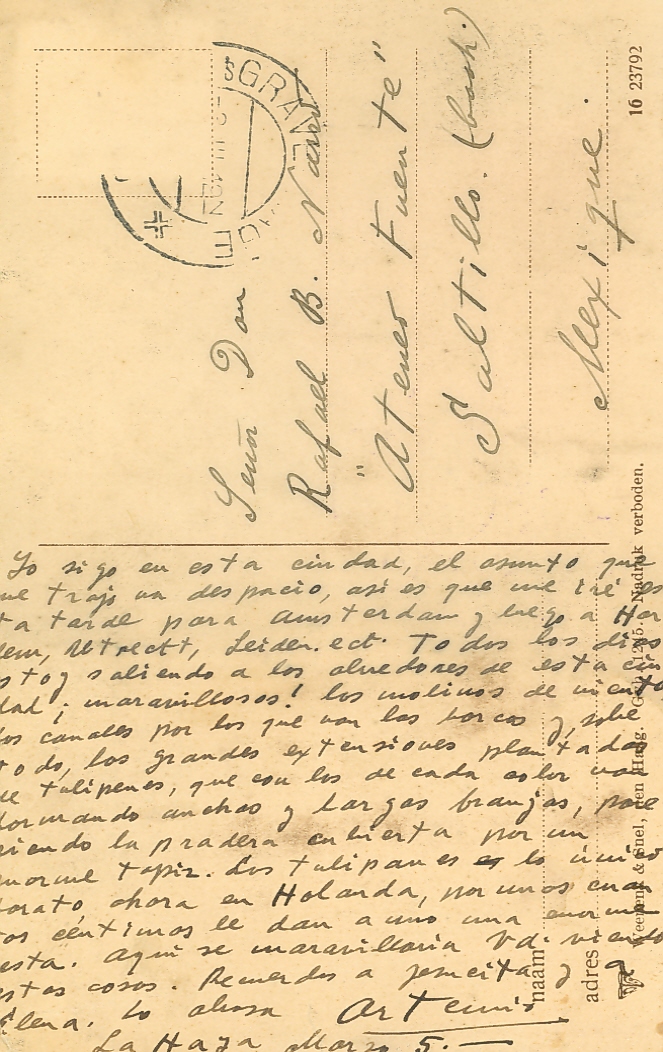 Señor Don
Rafael B. Narro
"Ateneo Fuente"
Saltillo. (Coah.)
Mexique.
16 23792
'SGRAVE
Yo sigo en esta ciudad, el asunto que
me trajo va despacio, así es que me iré es
ta tarde para Amsterdam y luego a Har
lem, Utrecht, Leiden. ect. Todos los días
estoy saliendo a los alrededores de esta ciu
dad ¡maravillosos! los molinos de viento
los canales por los que van las barcas y, sobre
todo, las grandes extensiones plantadas
de tulipanes, que con los de cada color van
formando anchas y largas franjas, pare
ciendo la pradera cubierta por un
enorme tapiz. Los tulipanes es lo único
barato ahora en Holanda, por unos cuan
tos céntimos le dan a uno una enorme
cesta. Aquí se maravillaría Vd. viendo
estas cosas. Recuerdos a Jesucita y a
Elena. Lo abraza Artemio
La Haya Marzo 5.—
naam
adres
Weenenk & Snel, Den Haag. Nadruk verboden.